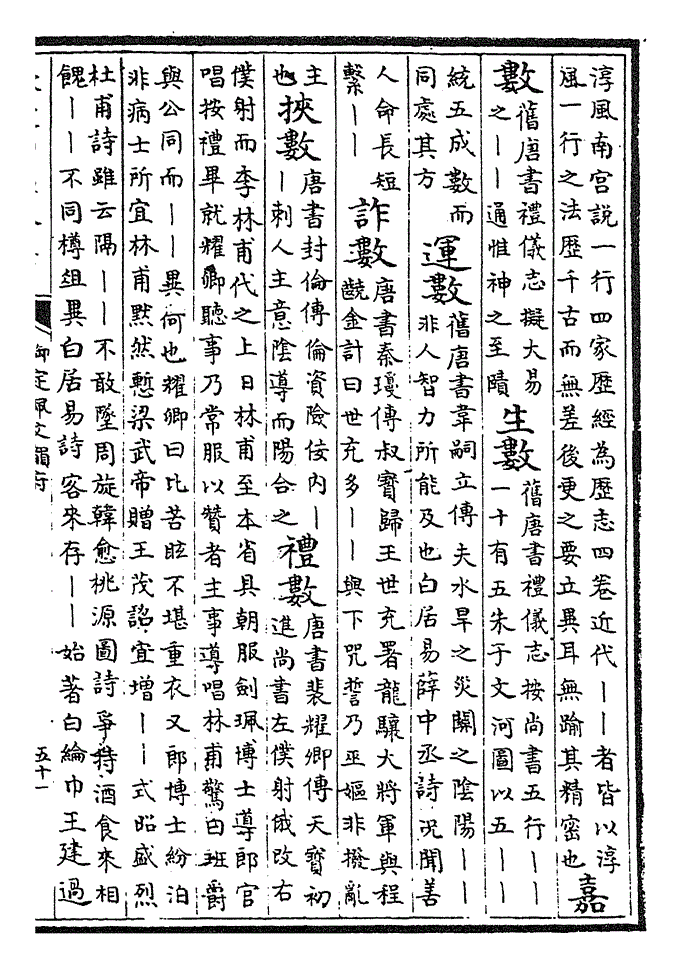 淳風南宫說一行四家歷經為歷志四卷近代丨丨者皆以淳
風一行之法歷千古而無差後更之要立異耳無踰其精密也
嘉
數
舊唐書禮儀志擬大易
之丨丨通惟神之至賾
生數
舊唐書禮儀志按尚書五行丨丨
一十有五朱子文河圖以五丨丨
統五成數而
同處其方
運數
舊唐書韋嗣立傳夫水旱之災關之陰陽丨丨
非人智力所能及也白居易薛中丞詩况聞善
人命長短
繫丨丨
詐數
唐書秦瓊傳叔寳歸王世充署龍驤大將軍與程
齩金計曰世充多丨丨與下咒誓乃巫嫗非撥亂
主
也
挾數
唐書封倫傳倫資險佞内丨
丨刺人主意陰導而陽合之
禮數
唐書裴耀卿傳天寳初
進尚書左僕射俄改右
僕射而李林甫代之上日林甫至本省具朝服劍珮博士導郎官
唱按禮畢就耀卿聽事乃常服以贊者主事導唱林甫驚曰班爵
與公同而丨丨異何也耀卿曰比苦眩不堪重衣又郎博士紛泊
非病士所宜林甫黙然慙梁武帝贈王茂詔宜增丨丨式昭盛烈
杜甫詩雖云隔丨丨不敢墜周旋韓愈桃源圖詩爭持酒食來相
餽丨丨不同樽俎異白居易詩客來存丨丨始著白綸巾王建過
御定佩文韻府
五十一